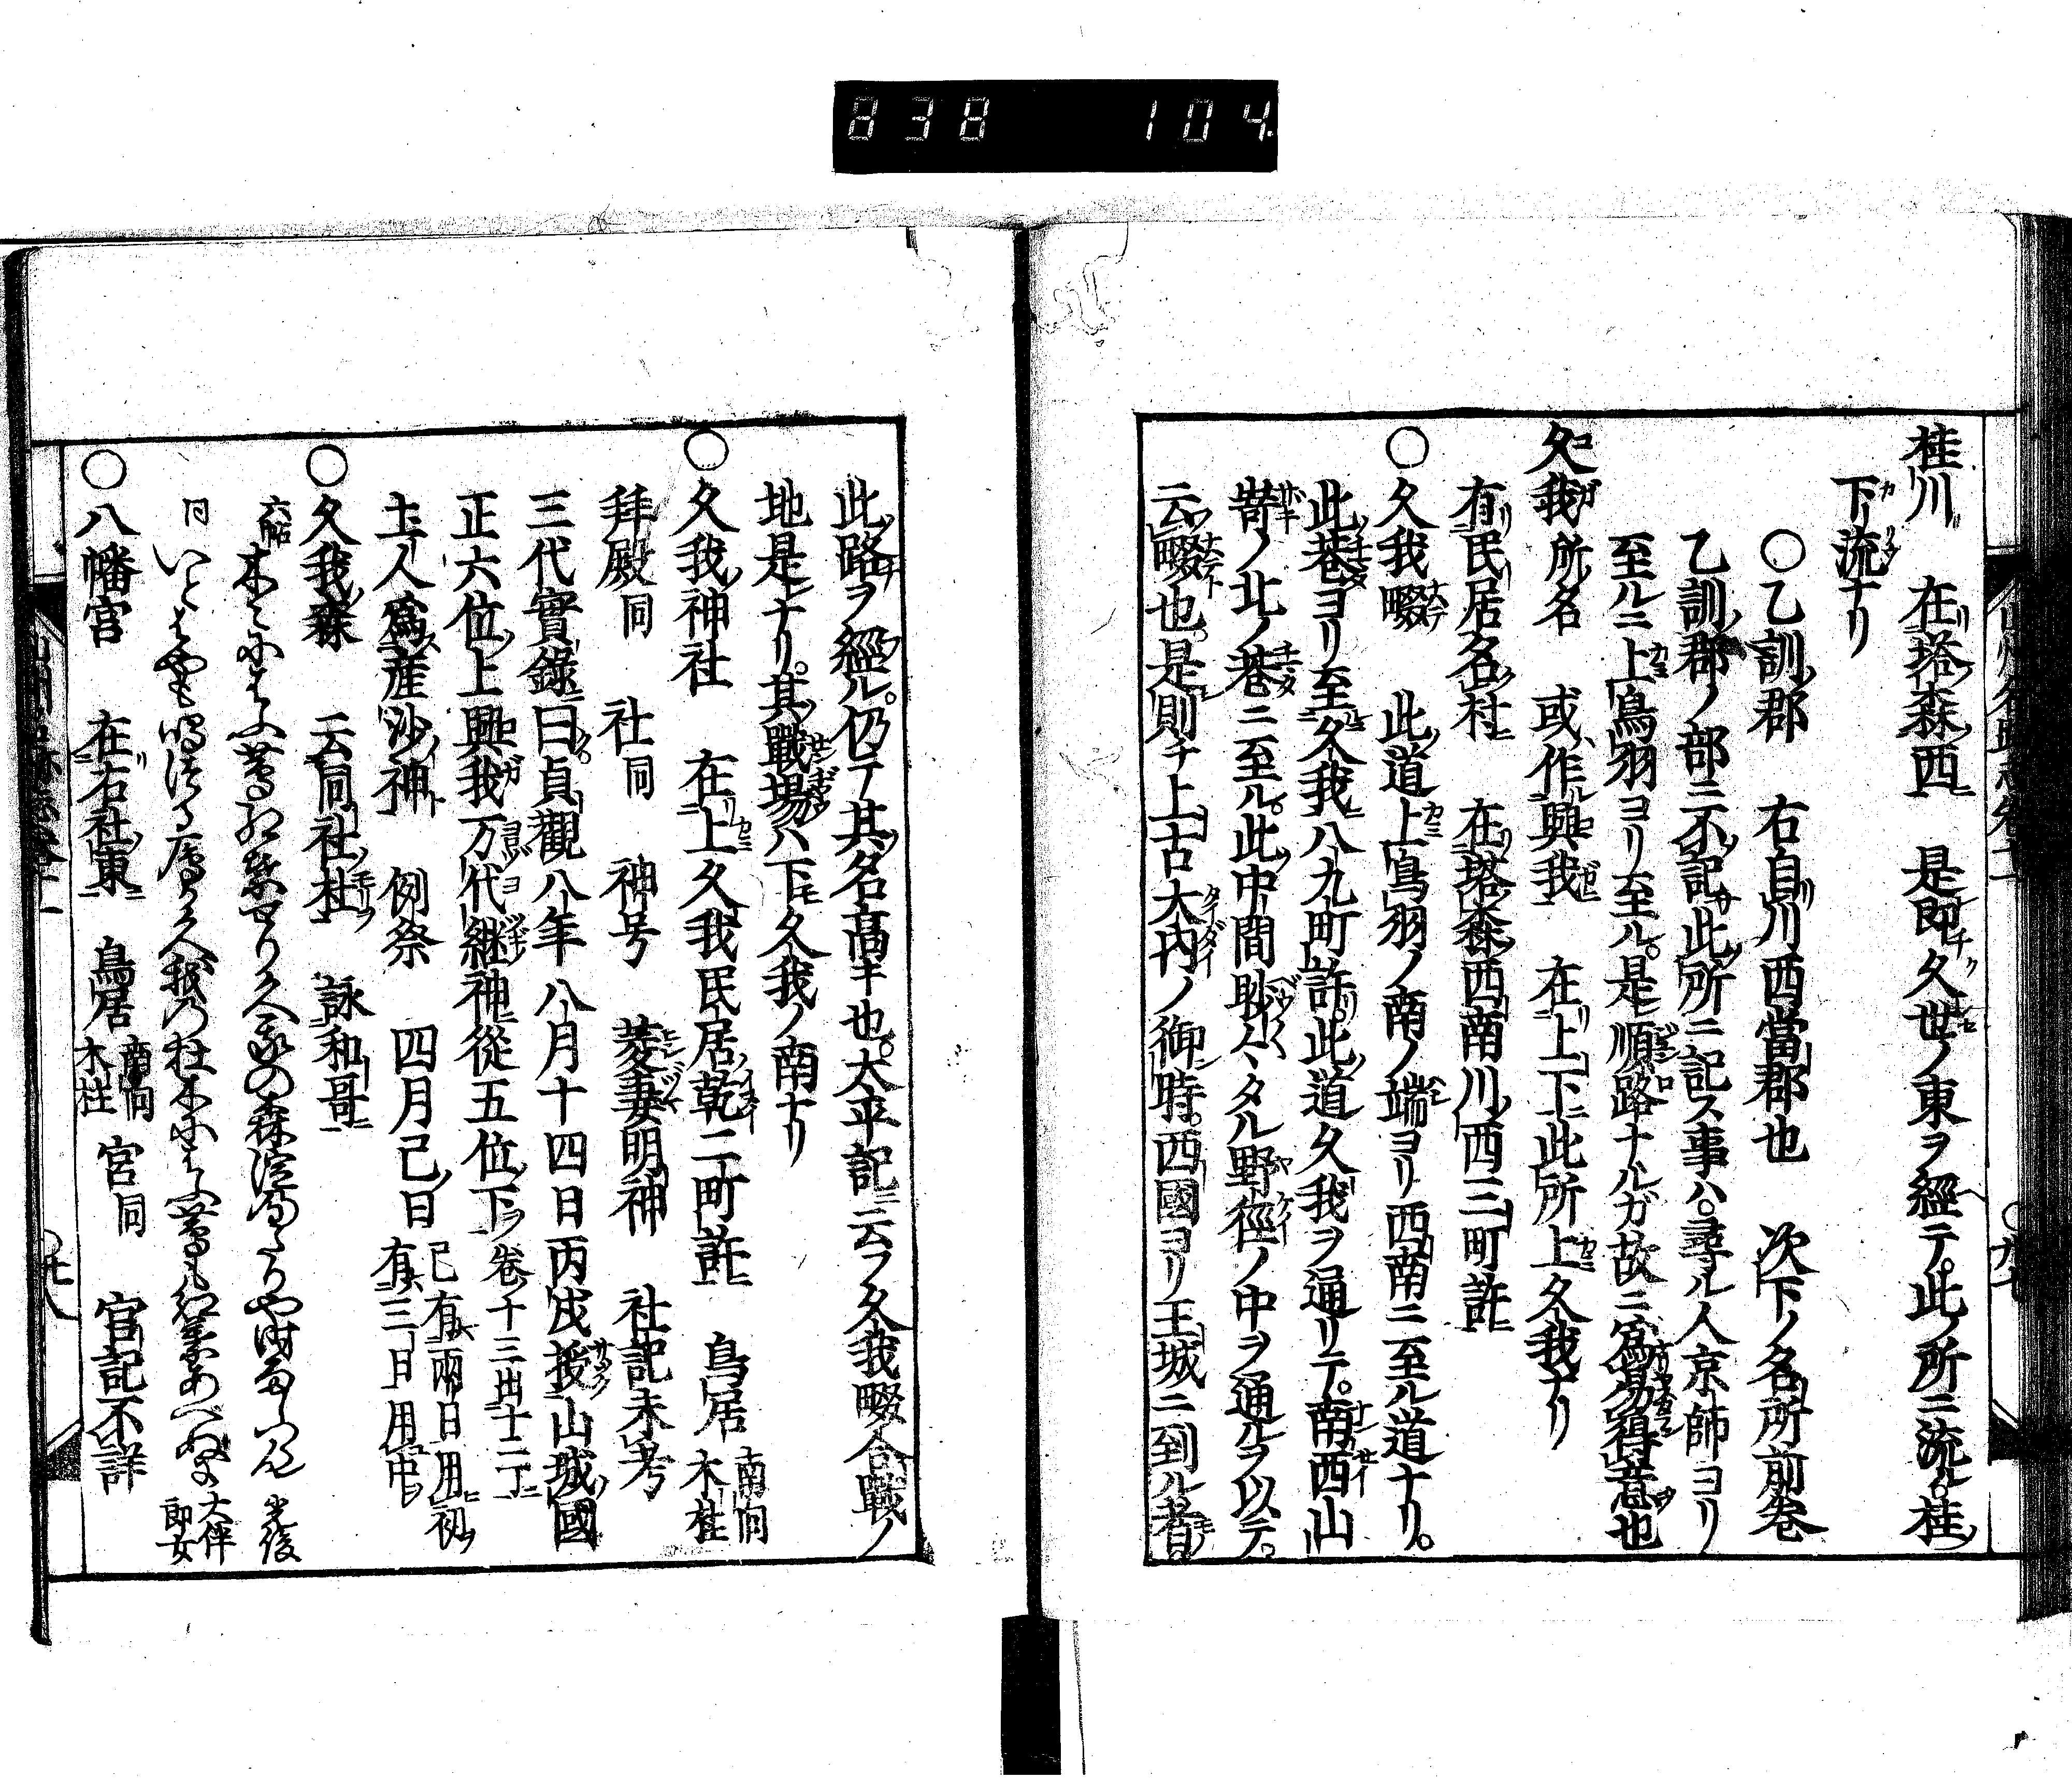 838 104
桂川 在塔森西 是即久世ノ東ヲ經テ此ノ所ニ流ル桂
下流ナリ
〇乙訓郡 右自川西當郡也 次下ノ名所前巻
乙訓郡ノ部ニ不記此所ニ記ス事ハ尋ル人京師ヨリ
至ルニ上鳥羽ヨリ至ル是順路ナルガ故ニ爲易得意也
久我所名 或作興我 在上下此所上久我ナリ
有民居名村 在塔森西南川西三町許
〇久我畷 此道上鳥羽ノ南ノ端ヨリ西南ニ至ル道ナリ
此巷ヨリ至久我八九町許此道久我ヲ通リテ南西山
嵜ノ北ノ巷ニ至ル此中間眇々タル野徑ノ中ヲ通ルヲ以テ
云畷也是則チ上古大内ノ御時西國ヨリ王城ニ到ル者
此路ヲ經ル仍テ其名髙キ也大平記ニ云フ久我畷合戰ノ
地是ナリ其戰場ハ下久我ノ南ナリ
〇久我神社 在上久我民居乾二町許 鳥居 南向 木柱
拜殿同 社同 神号 菱妻明神 社記未考
三代實錄曰貞觀八年八月十四日丙戌授山城國
正六位上興我万代継神從五位下 卷十三出十二丁
土人爲産沙神 例祭 四月己日 己有兩日用初 有三日用中
〇久我森 云同社杜 詠和哥
八幡宮 在右社東 鳥居 南向 木柱 宮同 宮記不詳